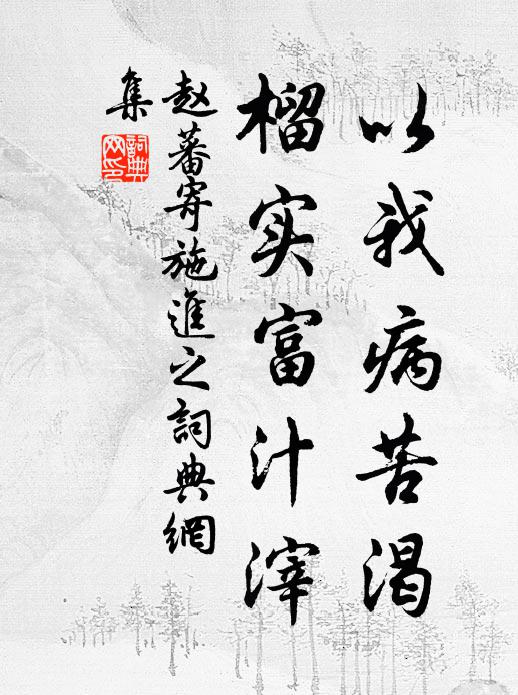 以我病苦渴
榴实富汁滓
赵蕃寄施進之詞典網
集
詞典
网